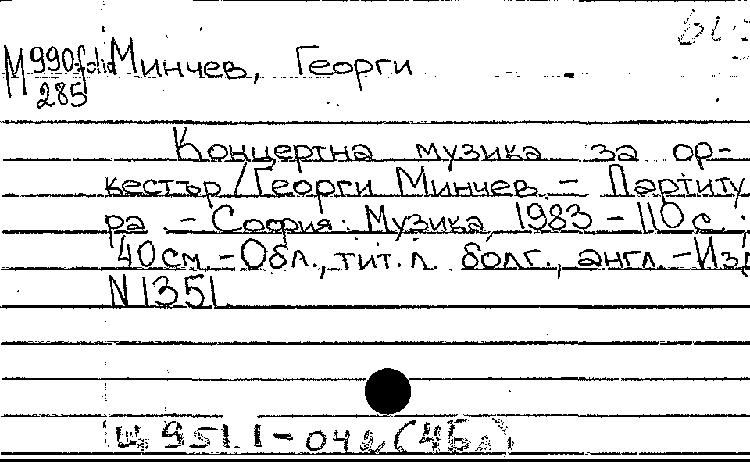 M990-folio Минчев, Георги
285
Концертна музика за ор-
кестър / Георги Минчев - Партиту
ра - София: Музика, 1983 - 110 с. :
40 см - Обл., тит. л. болг., англ. - Изд
N 1351
Щ 951.1-04 (4Бл)